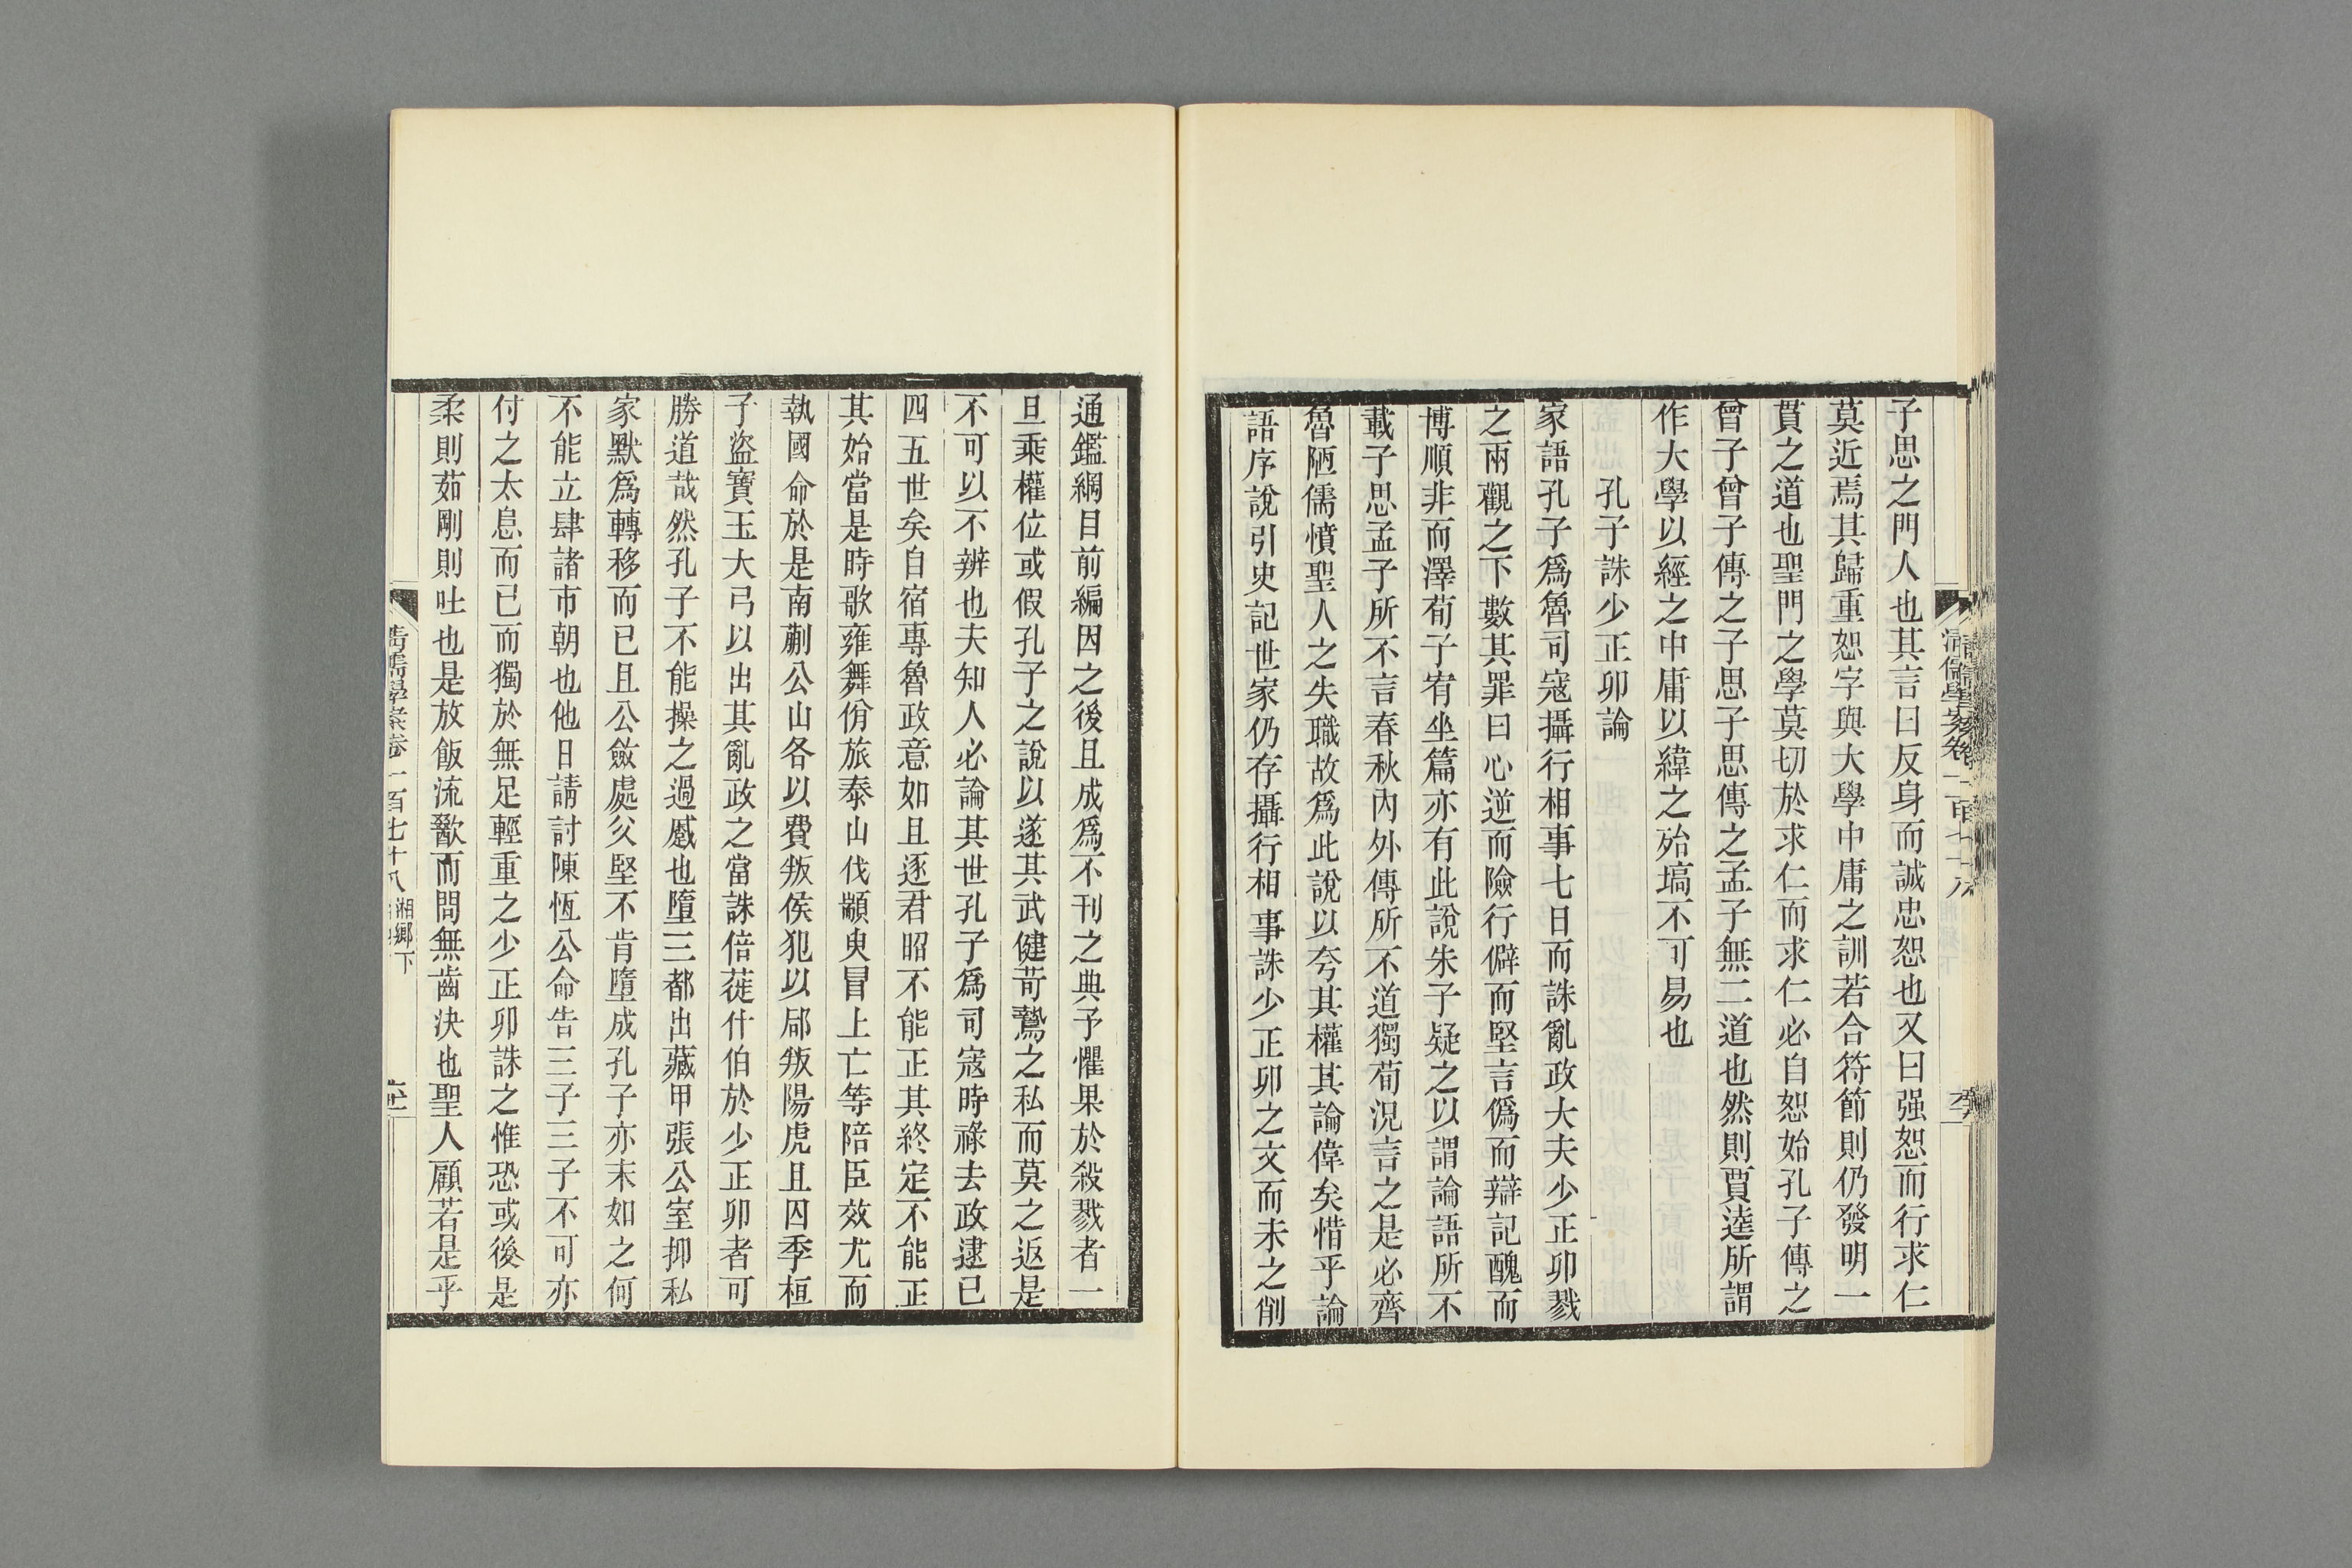 子思之門人也其言曰反身而誠忠恕也又曰强恕而行求仁
莫近焉其歸重恕字與大學中庸之訓若合符節則仍發明一
貫之道也聖門之學莫切於求仁而求仁必自恕始孔子傳之
曾子曾子傳之子思子思傳之孟子無二道也然則賈逵所謂
作大學以經之中庸以緯之殆塙不可易也
孔子誅少正卯論
家語孔子爲魯司寇攝行相事七日而誅亂政大夫少正卯戮
之兩觀之下數其罪曰心逆而險行僻而堅言僞而辯記醜而
博順非而澤荀子宥坐篇亦有此說朱子疑之以謂論語所不
載子思孟子所不言春秋內外傳所不道獨荀況言之是必齊
魯陋儒憤聖人之失職故爲此說以夸其權其論偉矣惜乎論
語序說引史記世家仍存攝行相事誅少正卯之文而未之削
通鑑綱目前編因之後且成爲不刊之典予懼果於殺戮者一
旦乘權位或假孔子之說以遂其武健苛鷙之私而莫之返是
不可以不辨也夫知人必論其世孔子爲司寇時祿去政逮已
四五世矣自宿專魯政意如且逐君昭不能正其終定不能正
其始當是時歌雍舞佾旅泰山伐顓臾冒上亡等陪臣效尤而
執國命於是南蒯公山各以費叛侯犯以郈叛陽虎且囚季桓
子盜寶玉大弓以出其亂政之當誅倍蓰什伯於少正卯者可
勝道哉然孔子不能操之過蹙也墮三都出藏甲張公室抑私
家默爲轉移而已且公斂處父堅不肯墮成孔子亦末如之何
不能立肆諸市朝也他日請討陳恆公命告三子三子不可亦
付之太息而已而獨於無足輕重之少正卯誅之惟恐或後是
柔則茹剛則吐也是放飯流歠而問無齒決也聖人顧若是乎
清儒學案卷一百七十八 湘鄉下